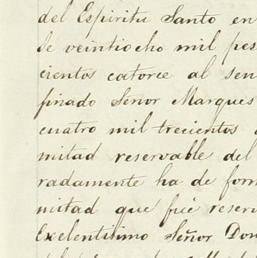 del Espiritu Santo en
de veintiocho mil pes
cientos catorce al sen
finado Señor Marques
cuatro mil trecientos
mitad reservable del
radamente ha de for
mitad que fué reser
Exelentisimo Señor Don